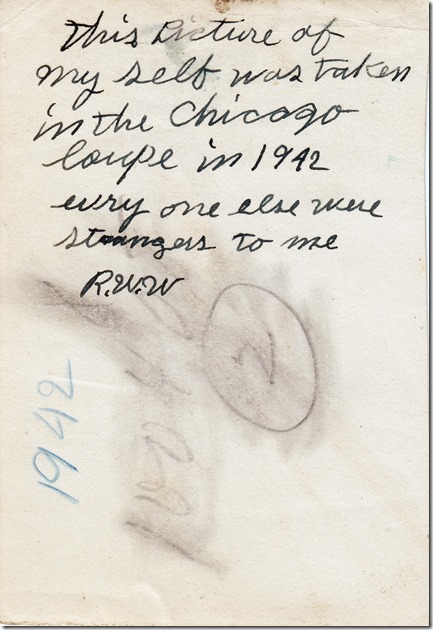 This Picture of
my self was taken
in the Chicago
loupe in 1942
evry one else were
strangers to me
R.W.W
2
1942